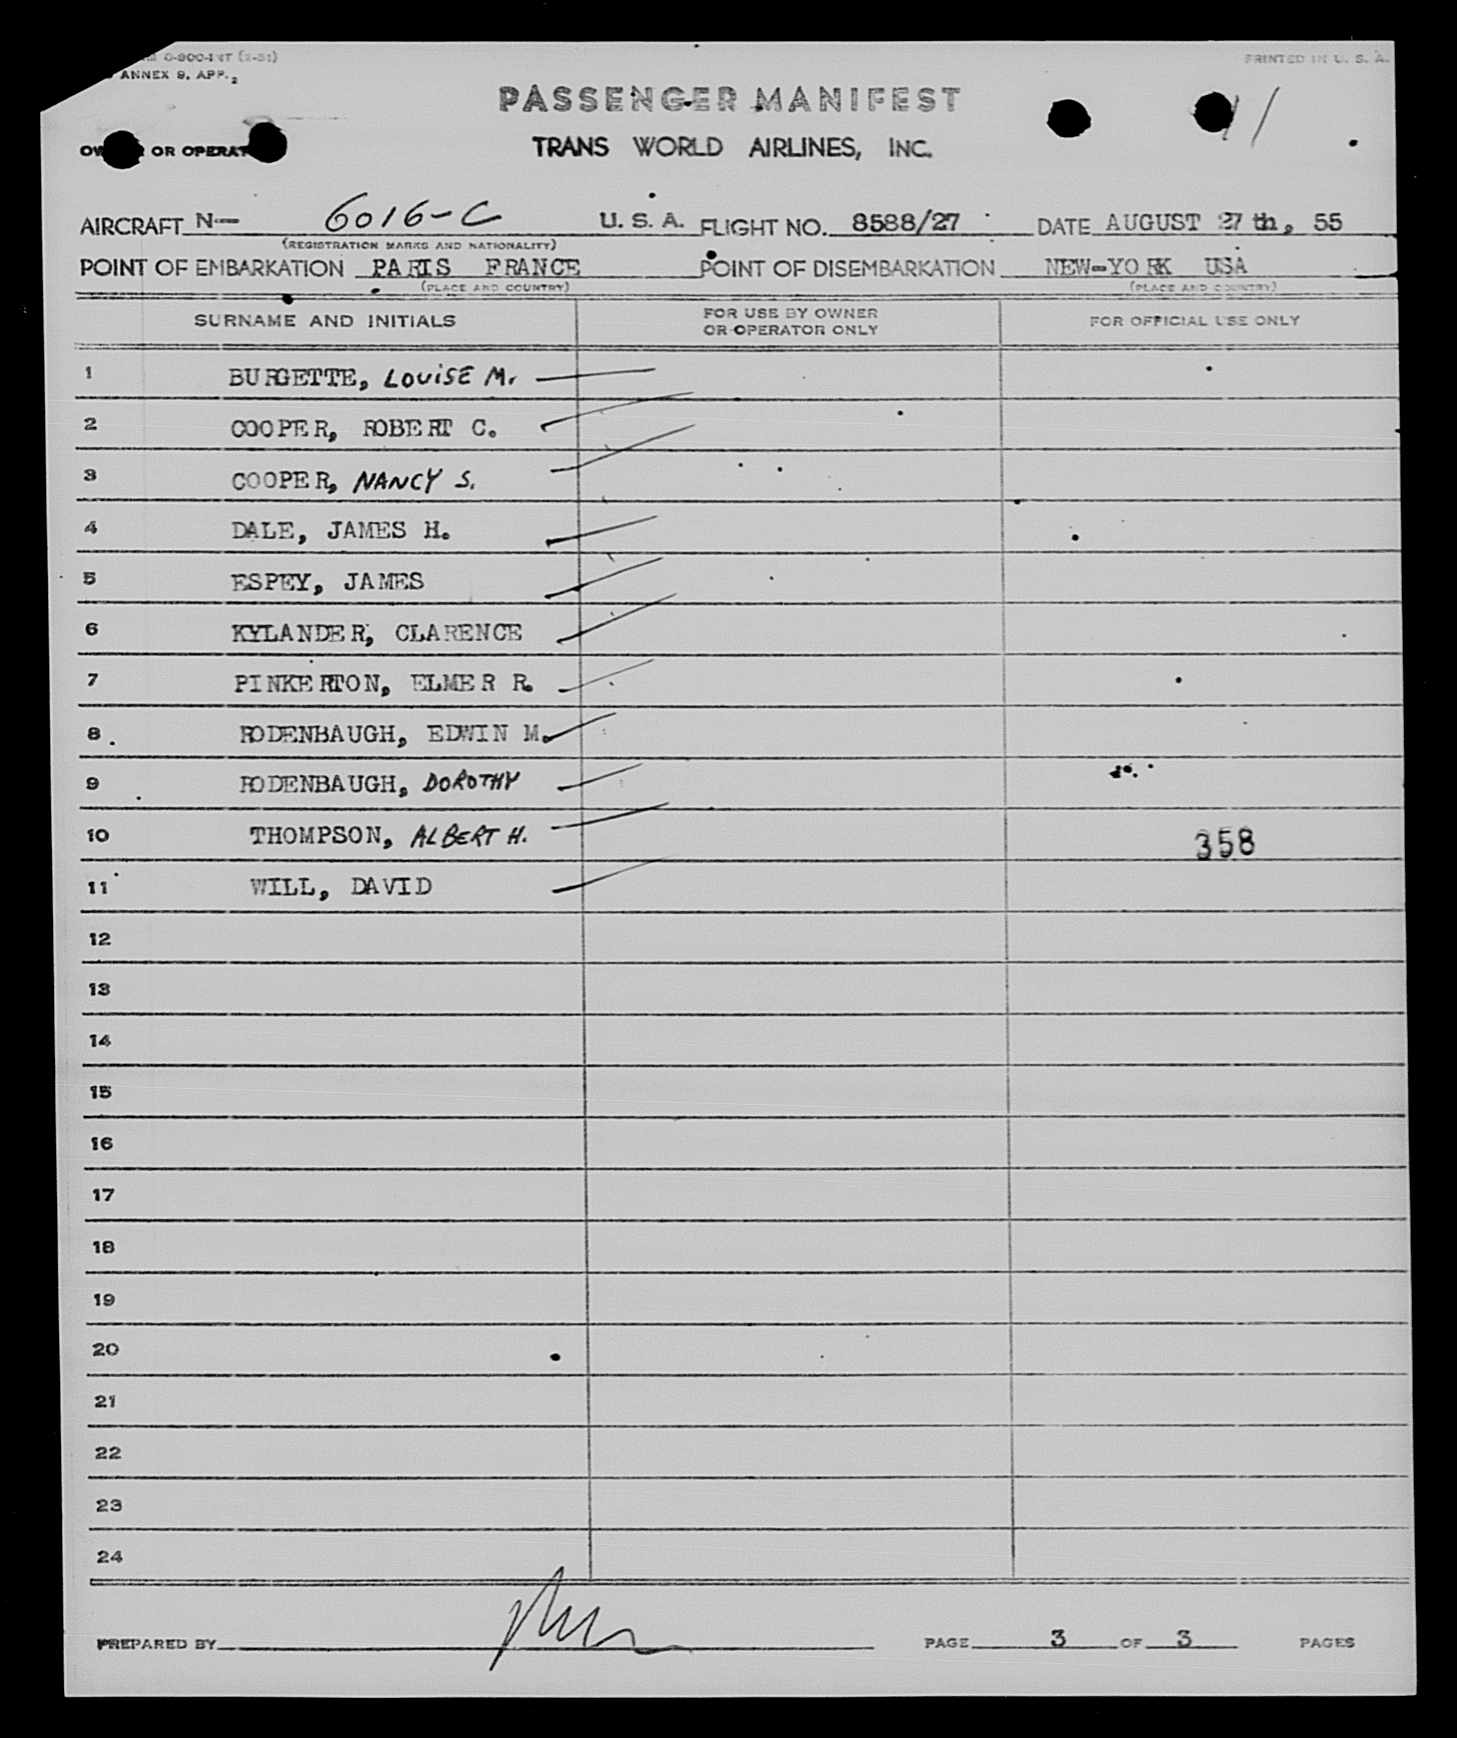 0-800-INT (2-51)
ANNEX 9, APP. 2
PRINTED IN U. S. A.
PASSENGER MANIFEST
OR OPERAT
TRANS WORLD AIRLINES, INC.
AIRCRAFT N- 6016-C U. S. A. FLIGHT NO. 8588/27 DATE AUGUST 27th, 55
(REGISTRATION MARKS AND NATIONALITY)
POINT OF EMBARKATION PARIS FRANCE POINT OF DISEMBARKATION NEW-YORK USA
(PLACE AND COUNTRY) (PLACE AND COUNTRY)
SURNAME AND INITIALS FOR USE BY OWNER OR OPERATOR ONLY FOR OFFICIAL USE ONLY
1 BURGETTE, LOUISE M.
2 COOPER, ROBERT C.
3 COOPER, NANCY S.
4 DALE, JAMES H.
5 ESPEY, JAMES
6 KYLANDER, CLARENCE
7 PINKERTON, ELMER R.
8 RODENBAUGH, EDWIN M.
9 RODENBAUGH, DOROTHY
10 THOMPSON, ALBERT H. 358
11 WILL, DAVID
12
13
14
15
16
17
18
19
20
21
22
23
24
PREPARED BY PAGE 3 OF 3 PAGES